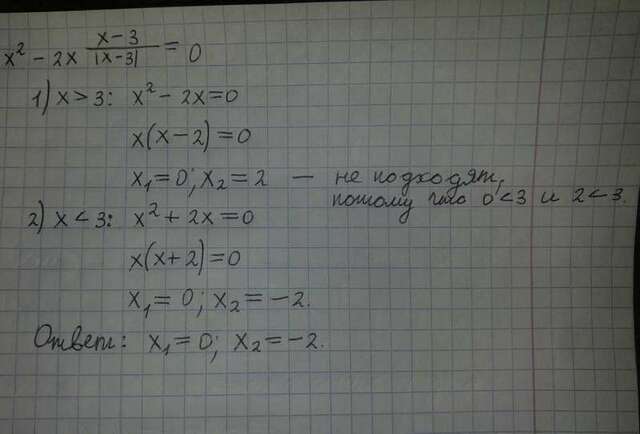 x² - 2x (x-3)/|x-3| = 0
1) x > 3: x² - 2x = 0
x(x-2) = 0
x₁ = 0; x₂ = 2 — не подходят,
потому что 0 < 3 и 2 < 3.
2) x < 3: x² + 2x = 0
x(x+2) = 0
x₁ = 0; x₂ = -2.
Ответ: x₁ = 0; x₂ = -2.